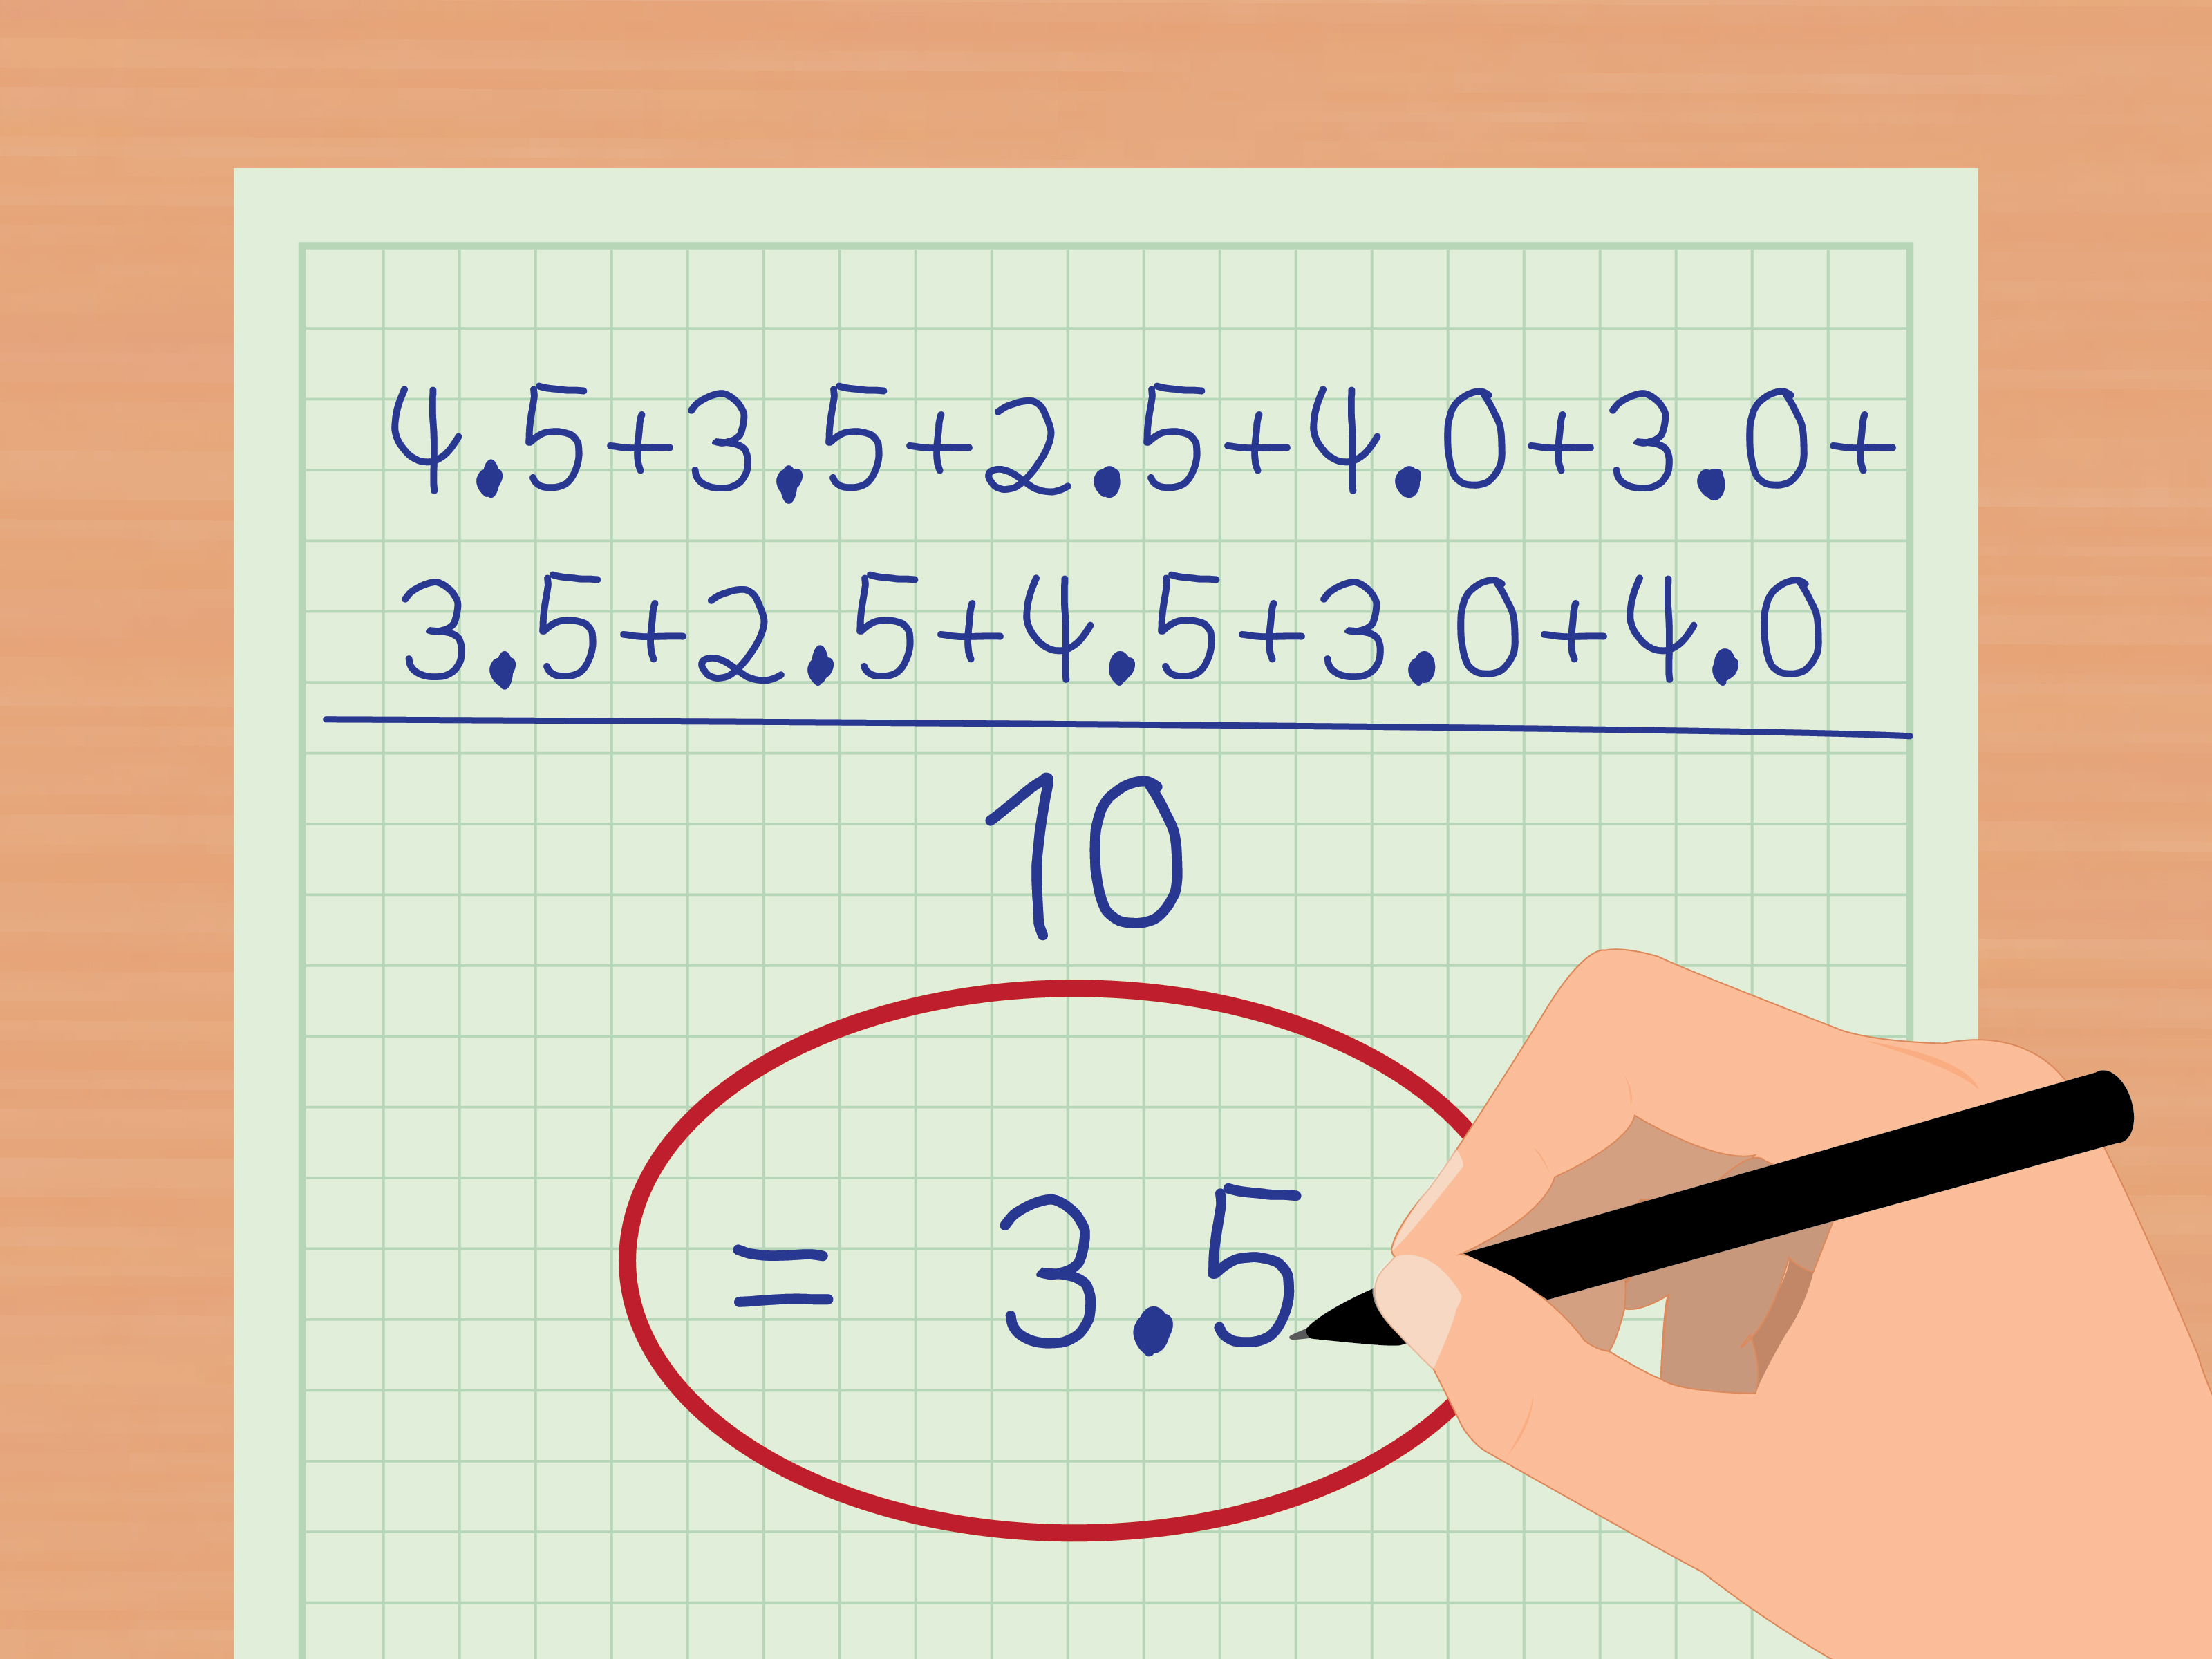 4.5+3.5+2.5+4.0+3.0+
3.5+2.5+4.5+3.0+4.0
10
= 3.5